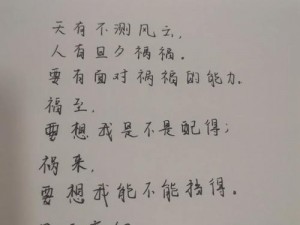 天有不测风云，
人有旦夕祸福。
要有面对祸福的能力。
福至，
要想我是不是配得；
祸来，
要想我能不能挡得。